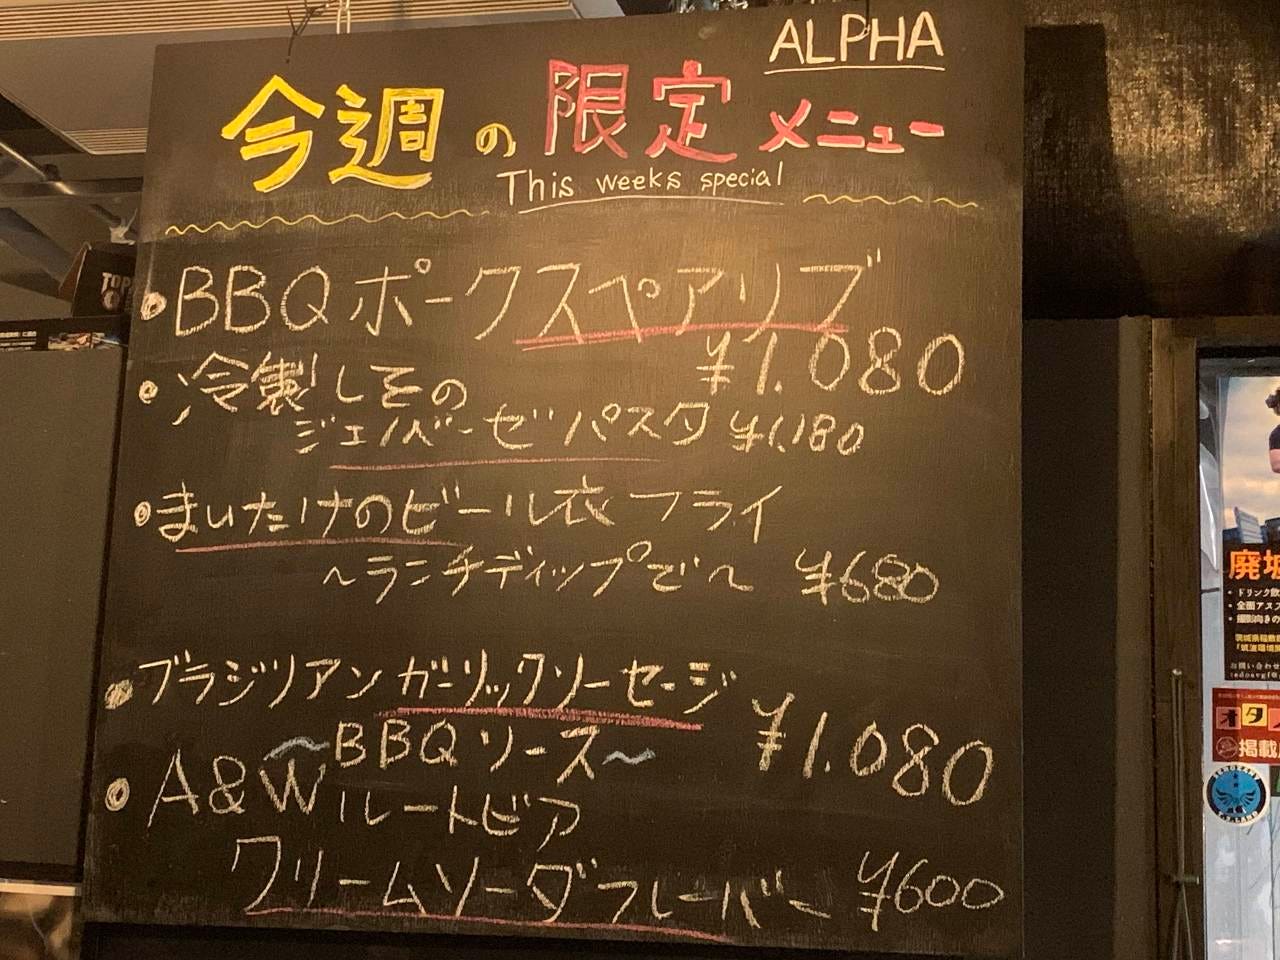 ALPHA
今週の限定メニュー
This weeks special
BBQポークスペアリブ
¥1.080
冷製しその
ジェノベーゼパスタ ¥1,180
まいたけのビール衣フライ
~ランチディップで~ ¥680
ブラジリアンガーリックソーセージ
~BBQソース~ ¥1.080
A&Wルートビア
クリームソーダフレーバー ¥600
TOP
廃墟
・ドリンク飲
・全面アス
・撮影向きの
お問い合わせ
オタ
掲載